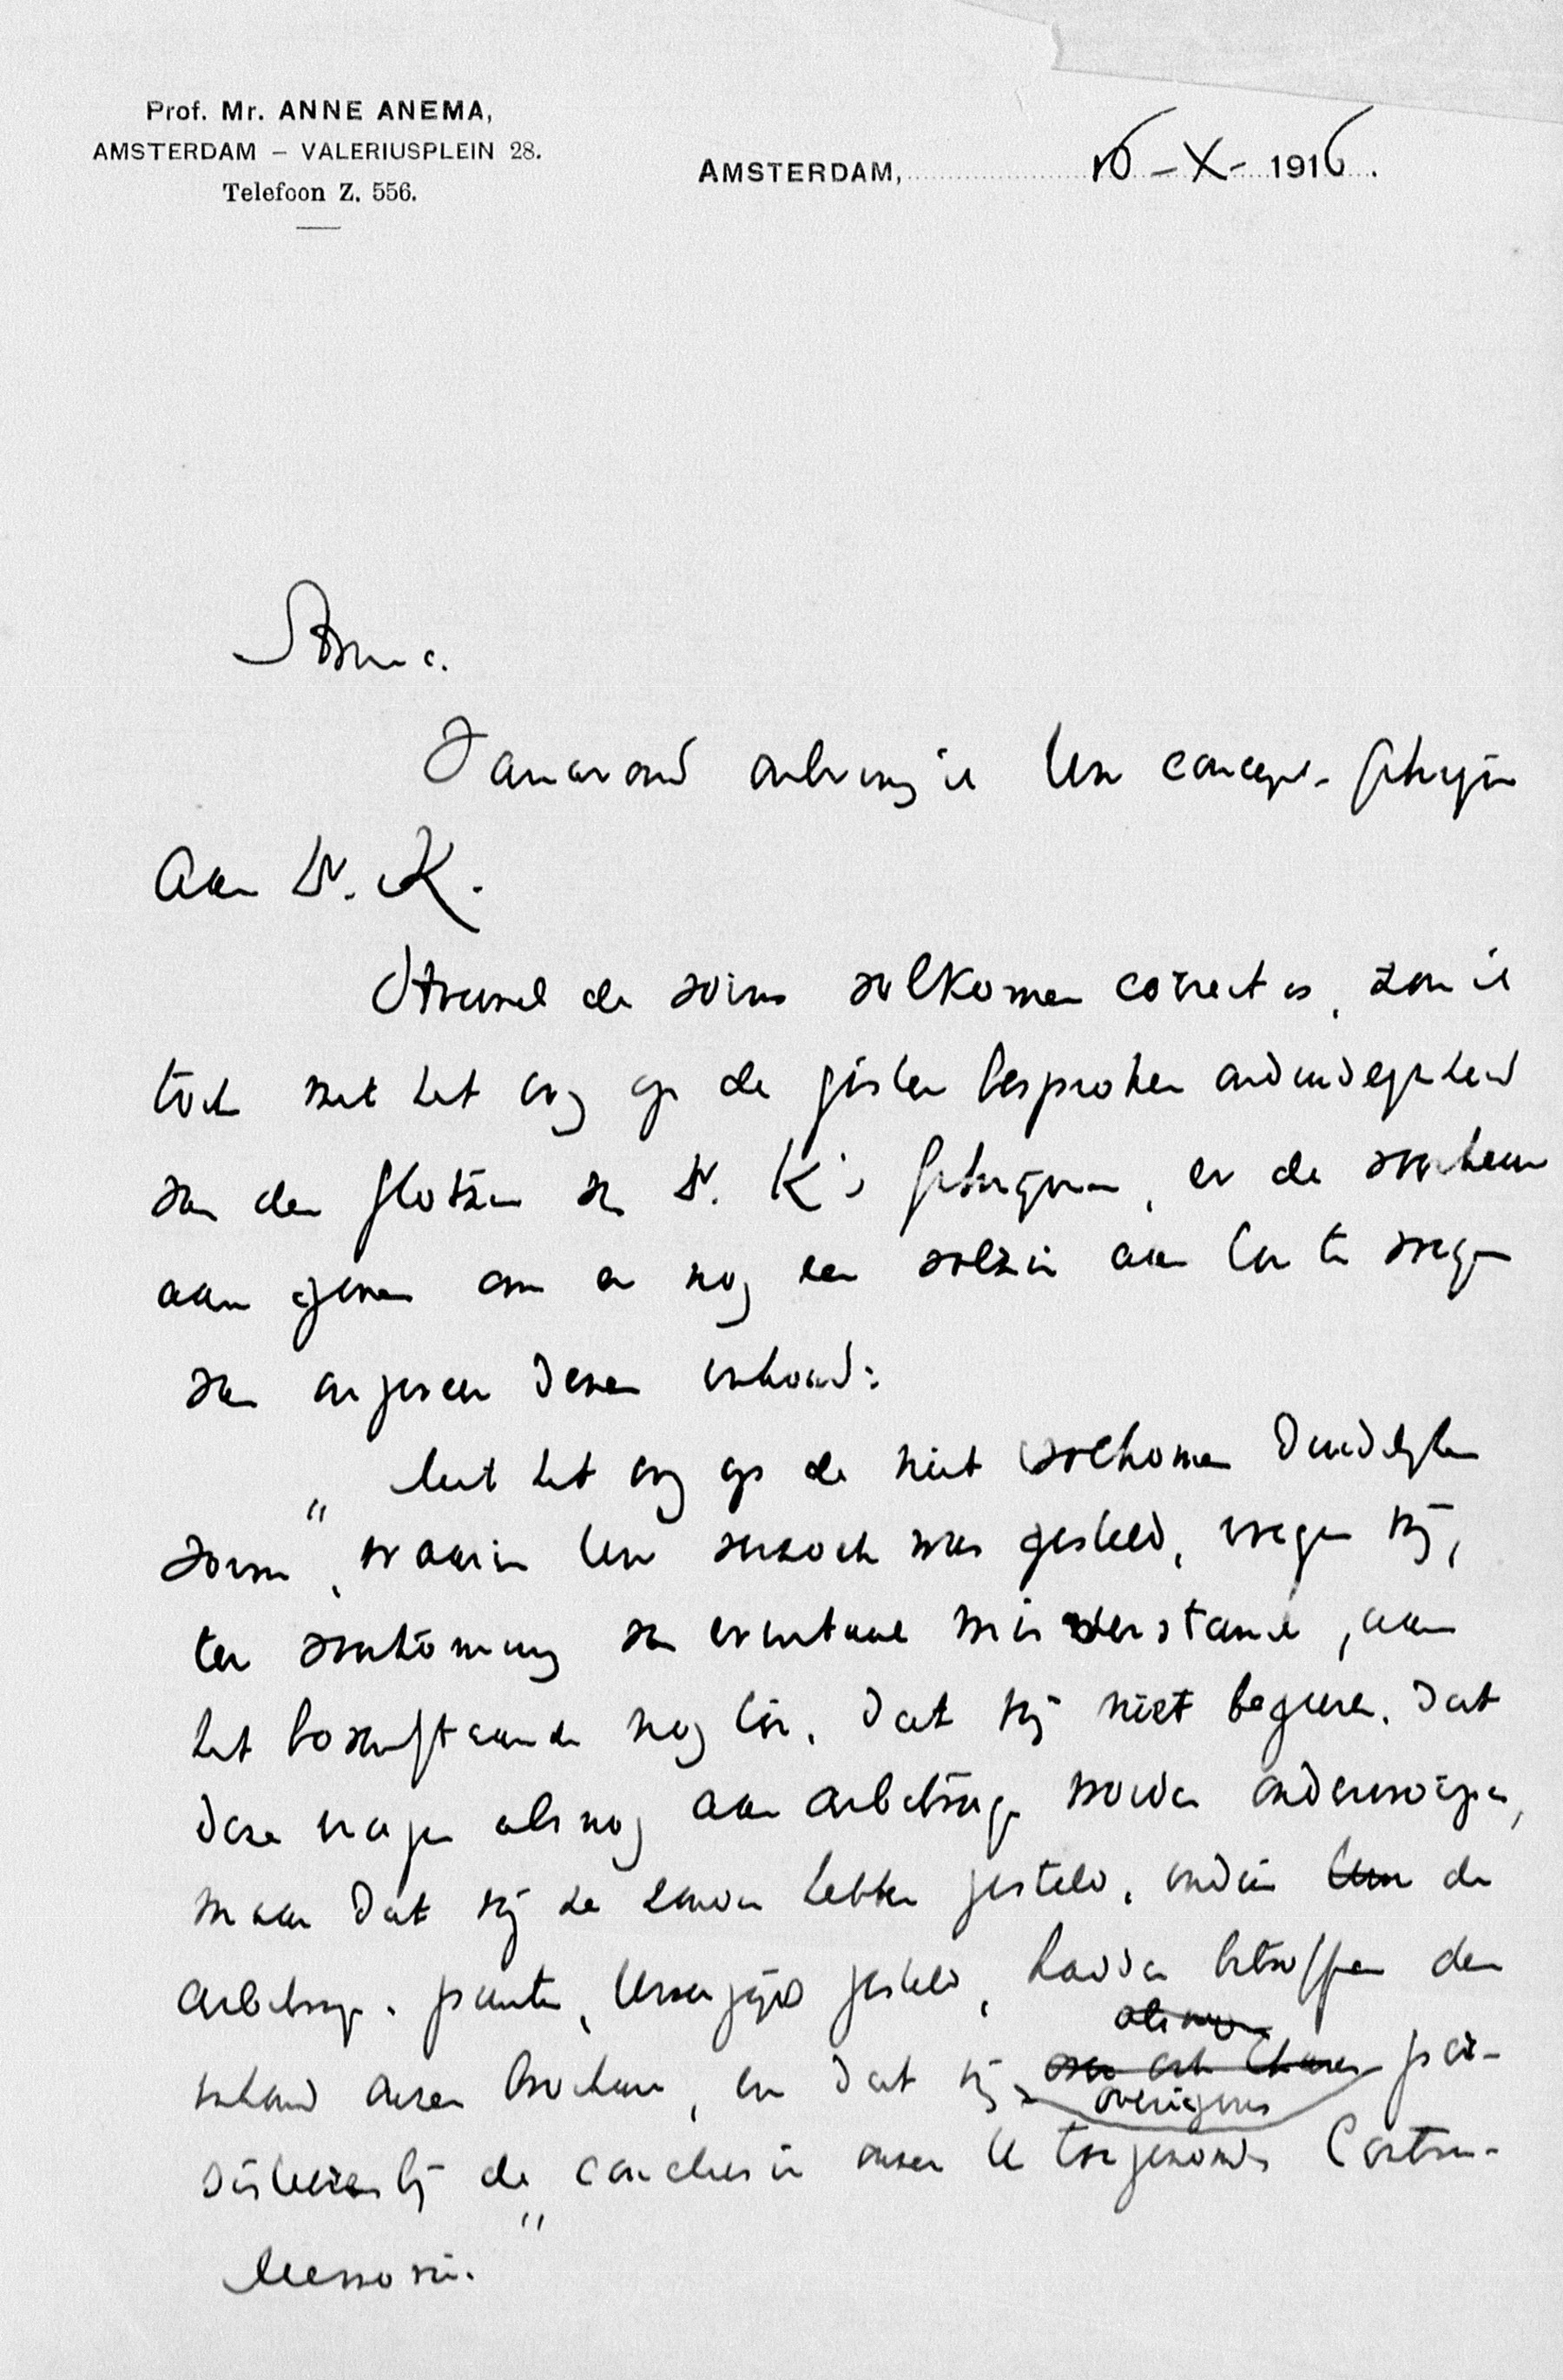 Prof. Mr. ANNE ANEMA,
AMSTERDAM – VALERIUSPLEIN 28.
Telefoon Z. 556.
AMSTERDAM, 16 – X – 1916.
Amice.
Vanavond ontving ik Uw concept-schrijven
aan Dr. K.
Hoewel de vorm volkomen correct is, zou ik
toch met het oog op de gister besproken onduidelijkheid
van den slotzin van Dr. K's schrijven, er de voorkeur
aan geven om er nog een volzin aan toe te voegen
van ongeveer dezen inhoud:
„Met het oog op de niet volkomen duidelijken
vorm, waarin Uw verzoek was gesteld, voegen wij,
ter voorkoming van eventueel misverstand, aan
het bovenstaande nog toe, dat wij niet begeeren, dat
deze vragen alsnog aan arbitrage worden onderworpen,
maar dat wij ze zouden hebben gesteld, indien Uw de
arbitrage-punten, Uwerzijds gesteld, hadden betroffen den
inhoud onzer brochure, en dat wij overigens per-
sisteeren bij de conclusie onzer U toegezonden Contra-
Memorie."